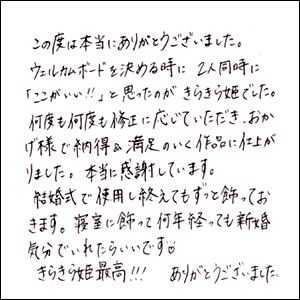 この度は本当にありがとうございました。
ウェルカムボードを決める時に 2人同時に
「ここがいい!!」と思ったのが きらきら姫でした。
何度も何度も修正に応じていただき、おか
げ様で納得&満足のいく作品に仕上が
りました。本当に感謝しています。
結婚式で使用し終えてもずっと飾ってお
きます。寝室に飾って何年経っても新婚
気分でいれたらいいです♡
きらきら姫最高!!! ありがとうございました。